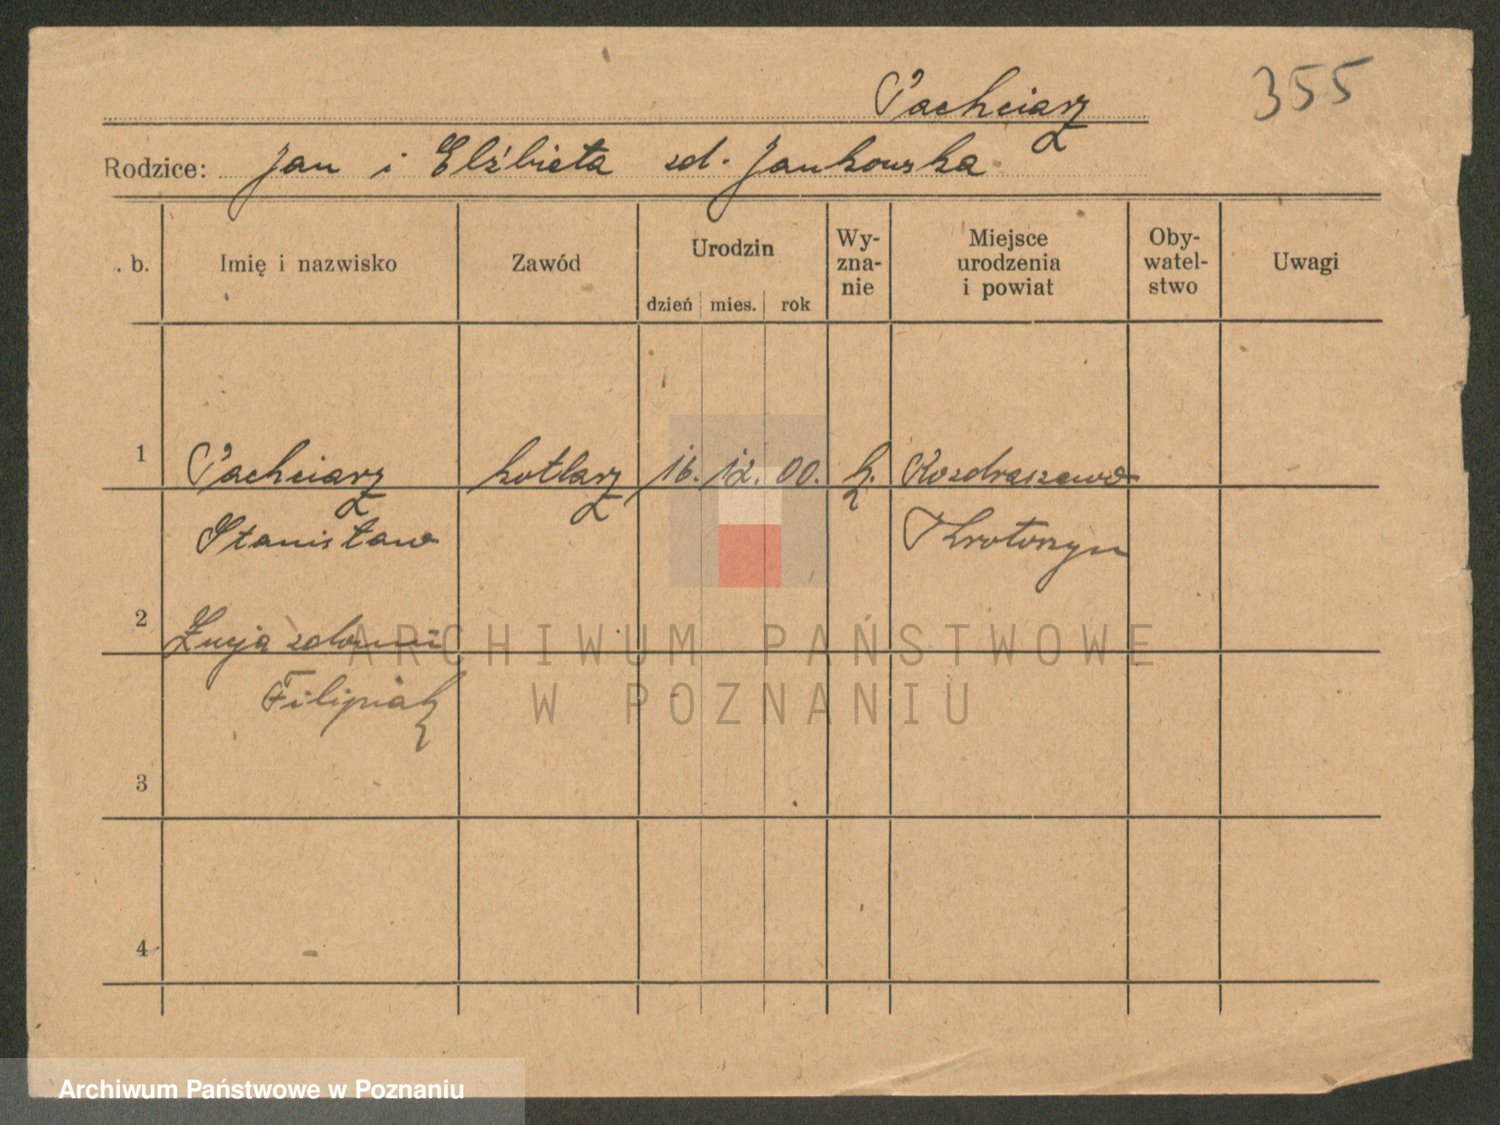 Pachciarz 355
Rodzice: Jan i Elżbieta zd. Jankowska
. b. Imię i nazwisko Zawód Urodzin Wy-zna-nie Miejsce urodzenia i powiat Oby-watel-stwo Uwagi
dzień mies. rok
1 Pachciarz kotlarz 16. 12. 00. k. Kozdraszewo
Stanisław Krotoszyn
2 Łucja
Filipiak
3
4
ARCHIWUM PAŃSTWOWE
W POZNANIU
Archiwum Państwowe w Poznaniu